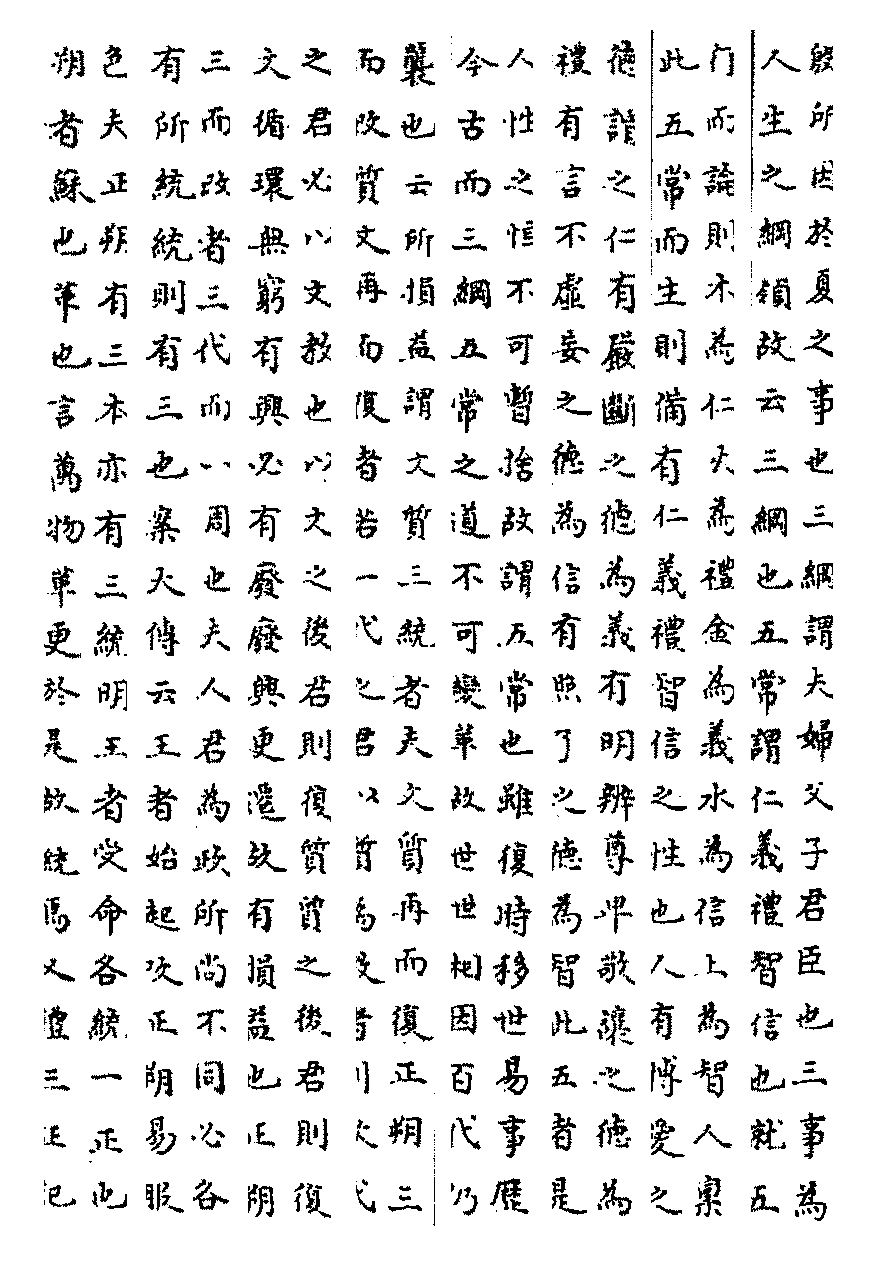 殷所因於夏之事也三綱謂夫婦父子君臣也三事為
人生之綱領故云三綱也五常謂仁義禮智信也就五
门而論則木為仁火為禮金為義水為信土為智人稟
此五常而生則備有仁義禮智信之性也人有博愛之
德謂之仁有嚴斷之德為義有明辨尊卑敬讓之德為
禮有言不虛妄之德為信有照了之德為智此五者是
人性之恒不可暫捨故謂五常也雖復時移世易事歷
今古而三綱五常之道不可變革故世世相因百代仍
襲也云所損益謂文質三統者夫文質再而復正朔三
而改質文再而復者若一代之君以質為教者則次代
之君必以文教也以文之後君則復質質之後君則復
文循環無窮有興必有廢廢興更遷故有損益也正朔
三而改者三代而一周也夫人君為政所尚不同必各
有所統統則有三也案大傳云王者始起改正朔易服
色夫正朔有三本亦有三統明王者受命各統一正也
朔者蘇也革也言萬物革更於是故統焉又禮三正記